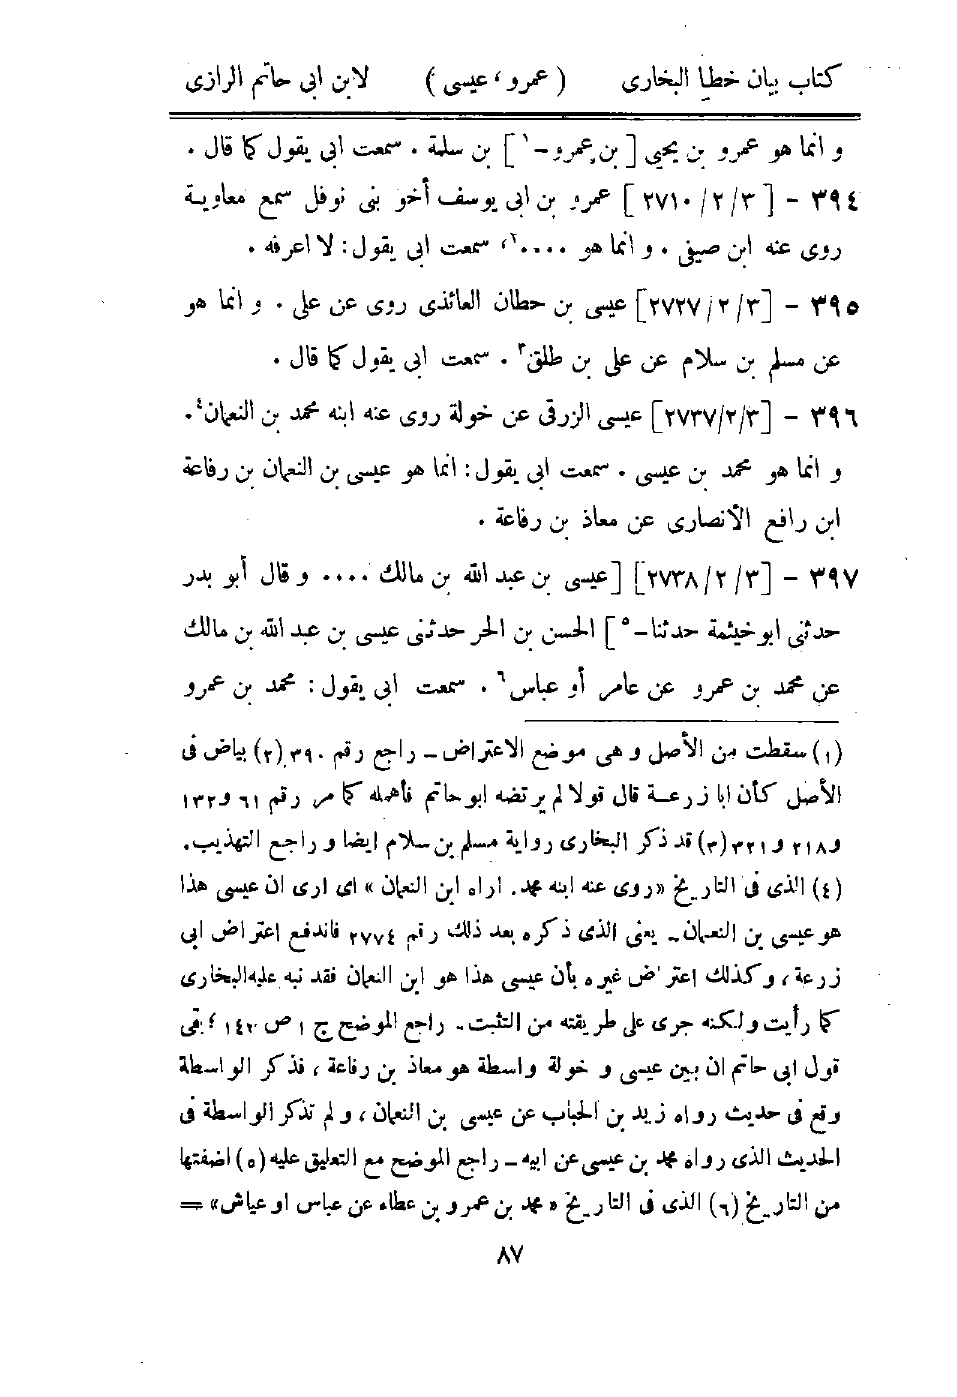 كتاب بيان خطإ البخارى ( عمرو، عيسى ) لابن ابى حاتم الرازى
و انما هو عمرو بن يحيى [ بن عمرو - ١ ] بن سلمة . سمعت ابى يقول كما قال .
٣٩٤ - [ ٣/ ٢/ ٢٧١٠ ] عمرو بن ابى يوسف أخو بنى نوفل سمع معاوية
روى عنه ابن صيفى . و انما هو ....٢، سمعت ابى يقول : لا اعرفه .
٣٩٥ - [٣/ ٢/ ٢٧٢٧] عيسى بن حطان العائذى روى عن على . و انما هو
عن مسلم بن سلام عن على بن طلق٣ . سمعت ابى يقول كما قال .
٣٩٦ - [٣/ ٢/ ٢٧٣٧] عيسى الزرقى عن خولة روى عنه ابنه محمد بن النعمان٤.
و انما هو محمد بن عيسى . سمعت ابى يقول : انما هو عيسى بن النعمان بن رفاعة
ابن رافع الأنصارى عن معاذ بن رفاعة .
٣٩٧ - [٣/ ٢/ ٢٧٣٨] [عيسى بن عبد الله بن مالك .... و قال أبو بدر
حدثنى ابو خيثمة حدثنا - ٥ ] الحسن بن الحر حدثنى عيسى بن عبد الله بن مالك
عن محمد بن عمرو عن عامر أو عباس٦ . سمعت ابى يقول : محمد بن عمرو
(١) سقطت من الأصل و هى موضع الاعتراض - راجع رقم ٣٩٠ (٢) بياض فى
الأصل كأن ابا زرعة قال قولا لم يرتضه ابو حاتم فأهمله كما مر رقم ٦١ و ١٣٢
و ٢١٨ و ٣٢١ (٣) قد ذكر البخارى رواية مسلم بن سلام ايضا و راجع التهذيب.
(٤) الذى فى التاريخ «روى عنه ابنه محمد. اراه ابن النعمان» اى ارى ان عيسى هذا
هو عيسى بن النعمان - يعنى الذى ذكره بعد ذلك رقم ٢٧٧٤ فاندفع اعتراض ابى
زرعة ، و كذلك اعتراض غيره بأن عيسى هذا هو ابن النعمان فقد نبه عليه البخارى
كما رأيت ولكنه جرى على طريقته من التثبت - راجع الموضح ج ١ ص ١٤٢ ؛ بقى
قول ابى حاتم ان بين عيسى و خولة واسطة هو معاذ بن رفاعة ، فذكر الواسطة
وقع فى حديث رواه زيد بن الحباب عن عيسى بن النعمان ، و لم تذكر الواسطة فى
الحديث الذى رواه محمد بن عيسى عن ابيه - راجع الموضح مع التعليق عليه (٥) اضفتها
من التاريخ (٦) الذى فى التاريخ « محمد بن عمرو بن عطاء عن عباس او عياش» =
٨٧